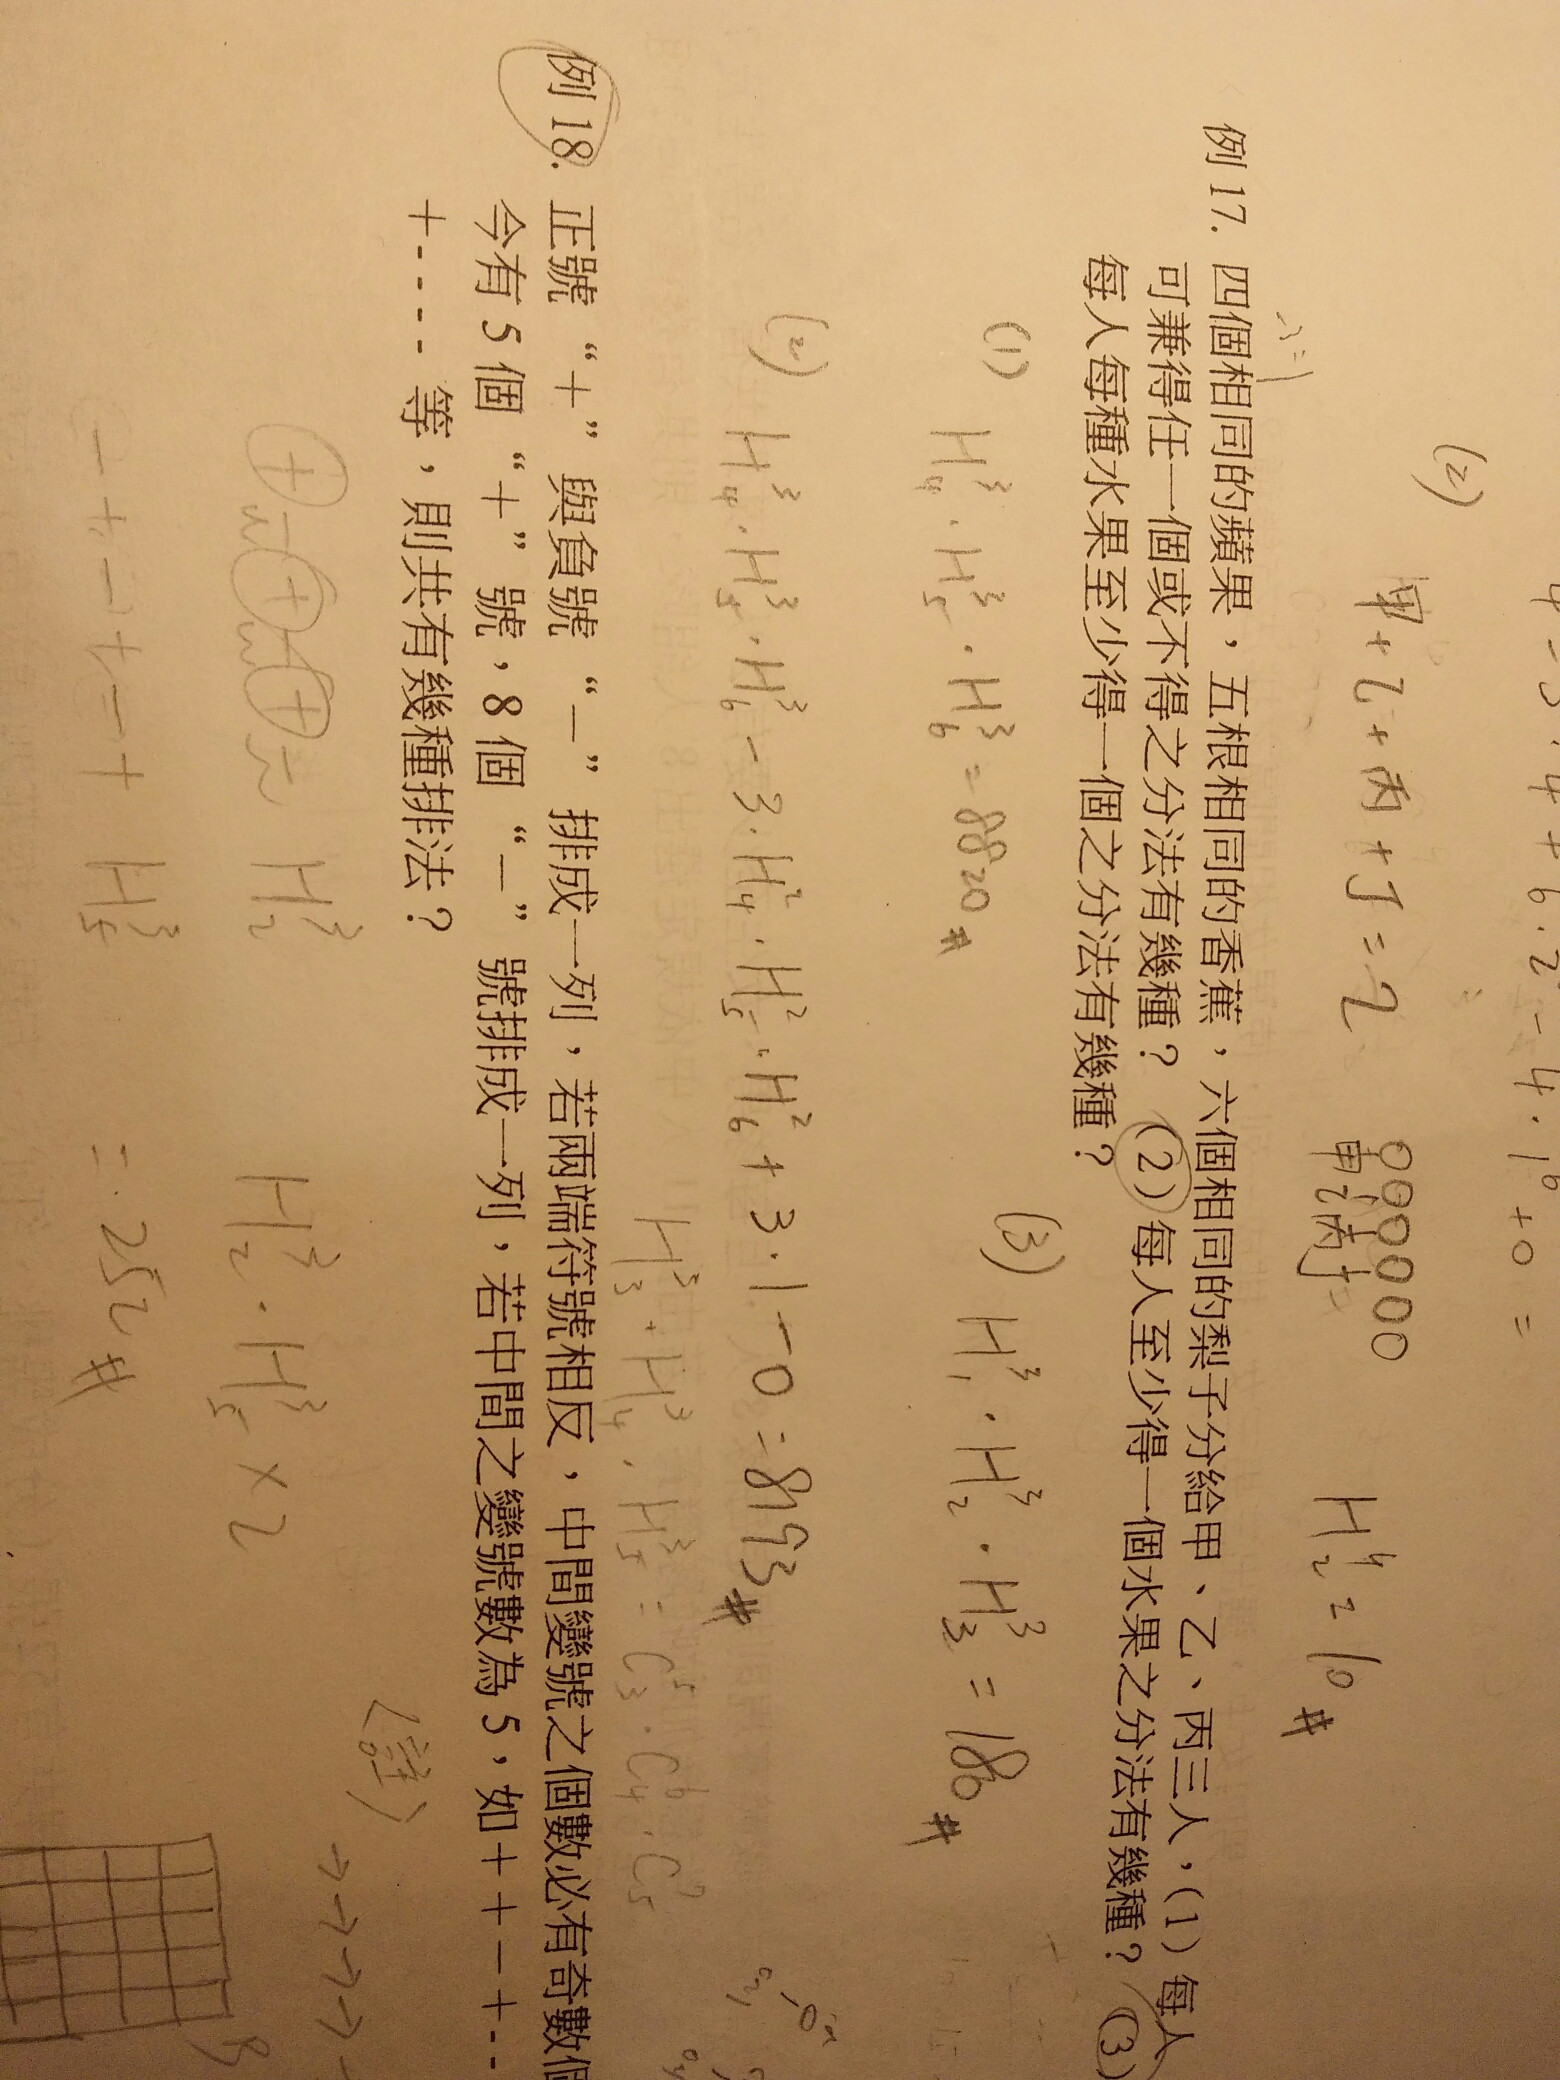 4 = 3 · 4 + 6 · 2 - 4 · 1⁶ + 0 =
(2) 甲+乙+丙+丁=2 000000 H⁴₂=10#
甲乙丙丁
例 17. 四個相同的蘋果，五根相同的香蕉，六個相同的梨子分給甲、乙、丙三人，(1) 每人
可兼得任一個或不得之分法有幾種？ (2) 每人至少得一個水果之分法有幾種？ (3)
每人每種水果至少得一個之分法有幾種？
(1) H³₄·H³₅·H³₆=8820# (3) H³₁·H³₂·H³₃=180#
(2) H³₄·H³₅·H³₆-3·H²₄·H²₅·H²₆+3·1-0=8193#
H³₃·H³₄·H³₅=C⁵₃·C⁶₄·C⁷₅
例 18. 正號 “＋” 與負號 “－” 排成一列，若兩端符號相反，中間變號之個數必有奇數個
今有 5 個 “＋” 號，8 個 “－” 號排成一列，若中間之變號數為 5，如＋＋－＋--
＋---- 等，則共有幾種排法？
+-+-+- H³₂ H³₂·H³₅×2
-+-+-+ H³₅ =252#
→→→→
B